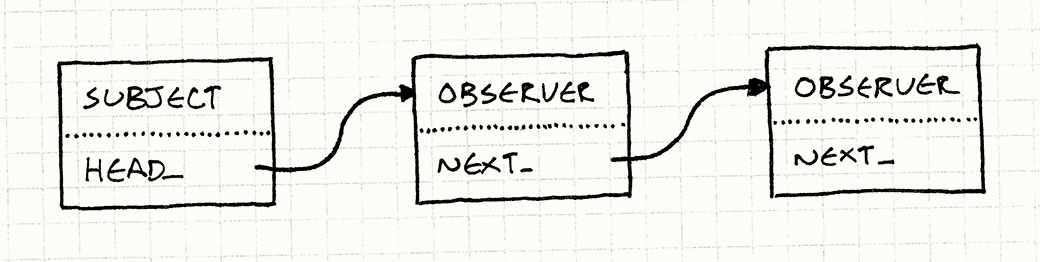 SUBJECT
HEAD_
OBSERVER
NEXT_
OBSERVER
NEXT_